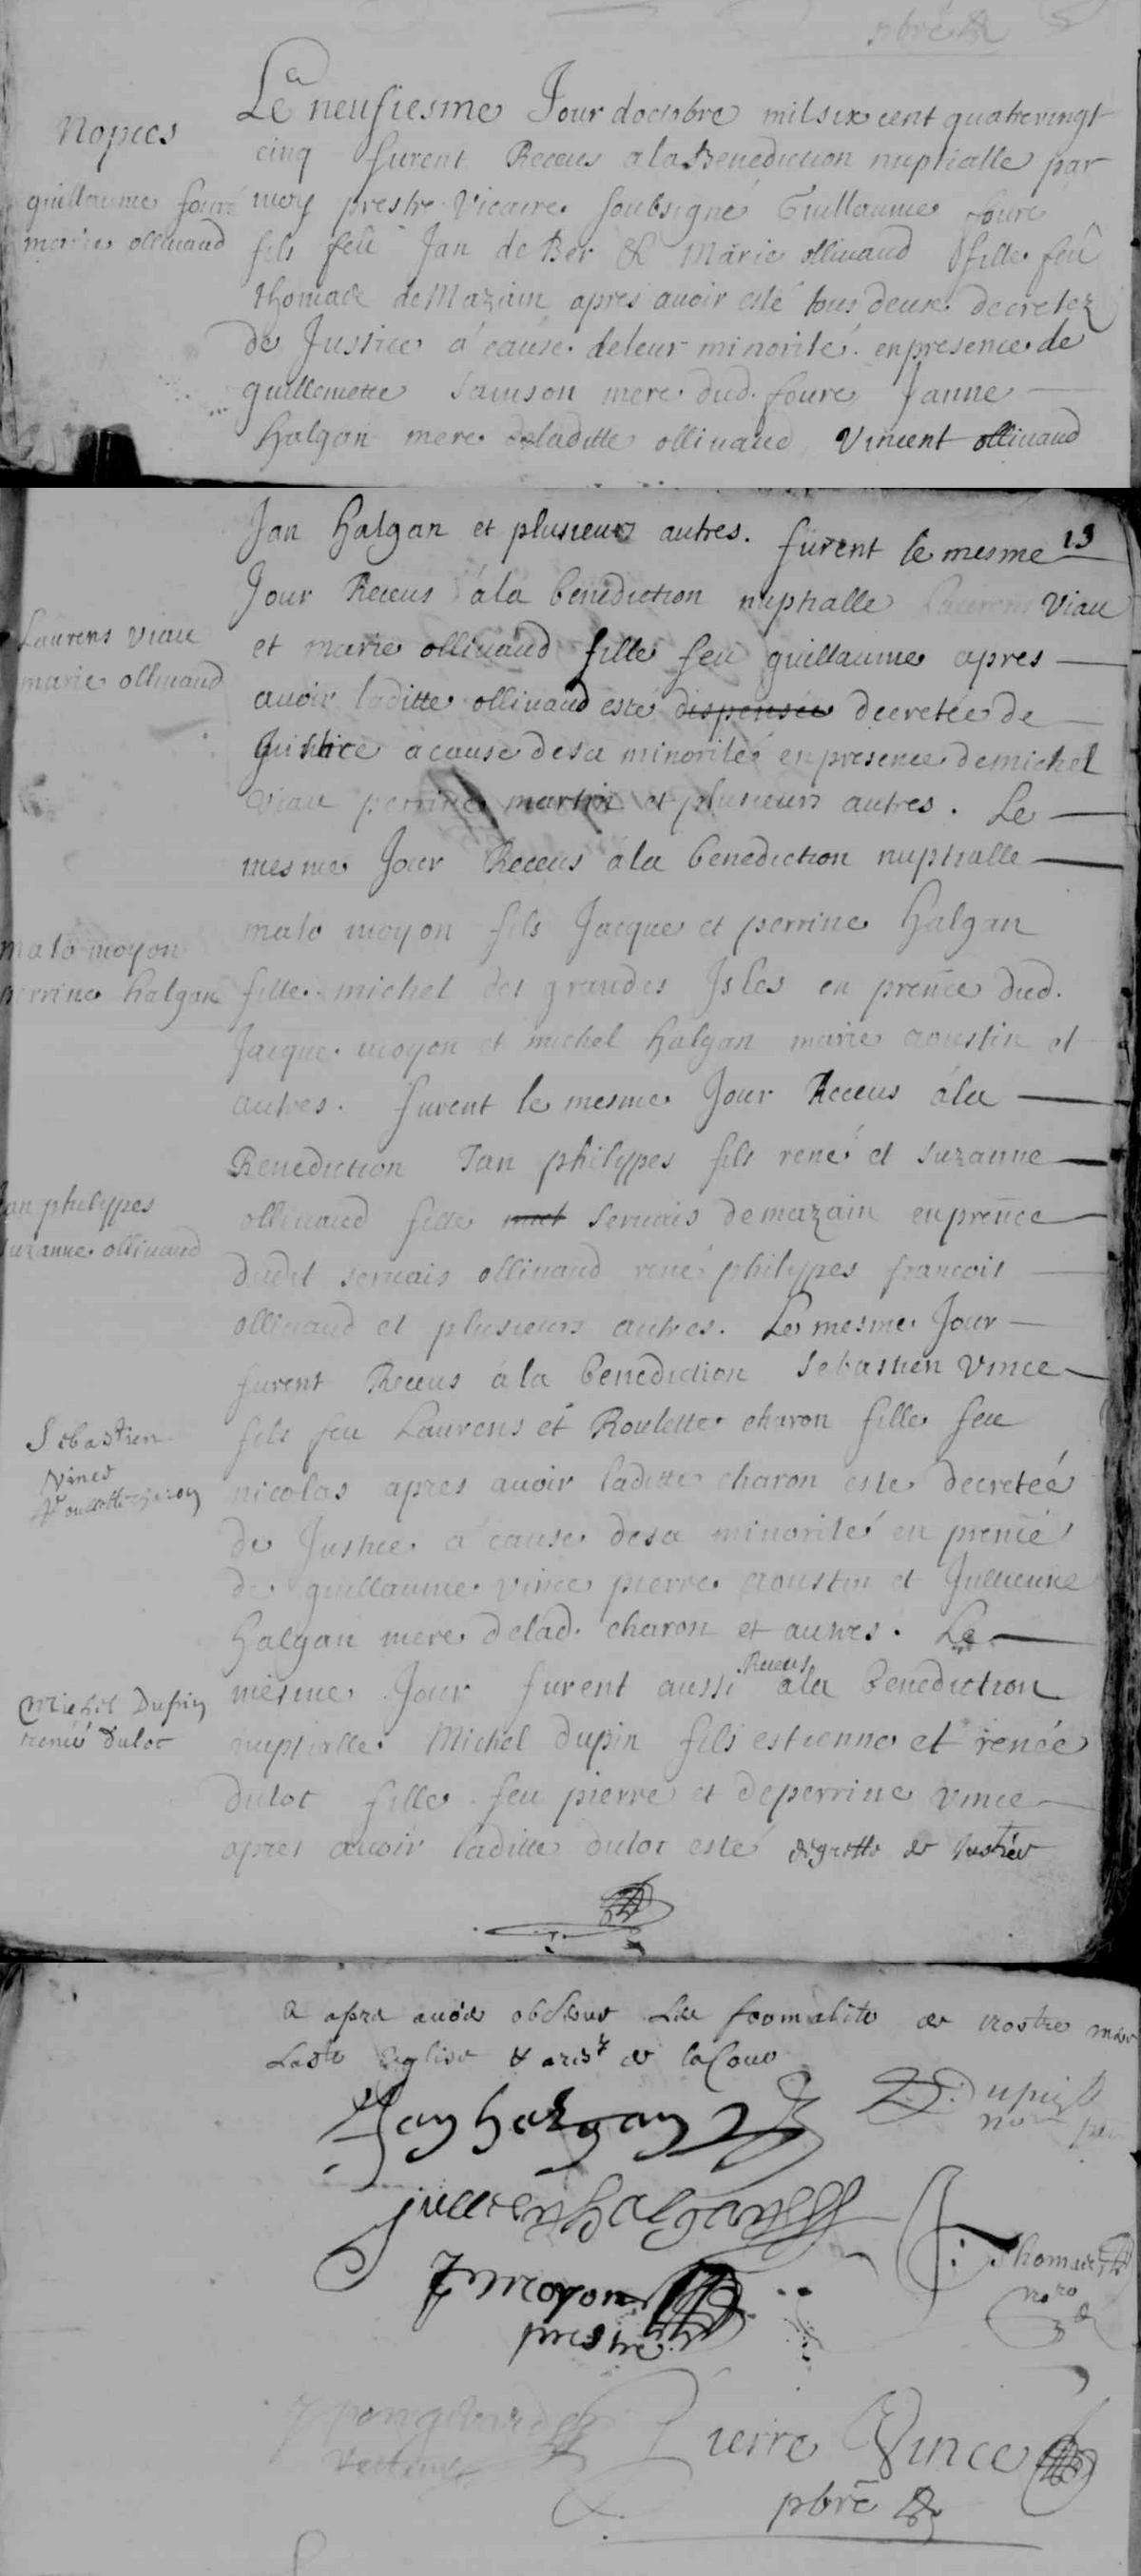 pbre
Le neufiesme Jour doctobre mil six cent quatrevingt
Nopces
cinq furent Receus a la Benediction nuptialle par
guillaume foure
moy prestre Vicaire soubsigné Guillaume foure
marie ollivaud
fils feü Jan de Ber & Marie ollivaud fille feü
thomas de Mazain apres avoir esté tous deux decretez
de Justice á cause de leur minorité en presence de
guillemette Samson mere dud. foure Janne
halgan mere de laditte ollivaud Vincent ollivaud
Jan halgan et plusieurs autres. furent le mesme 13
Jour Receus á la benediction nuptialle Laurens Viau
Laurens viau
et marie ollivaud fille feu guillaume apres
marie ollivaud
avoir laditte ollivaud esté dispensée decretée de
Justice a cause de sa minorité en presence de michel
viau perrine martin et plusieurs autres. Le
mesme Jour Receus á la benediction nuptialle
malo moyon fils Jacque et perrine halgan
malo moyon
perrine halgan
fille michel des grandes Isles en prence dud.
Jacque moyon et michel halgan marie aoustin et
autres. furent le mesme Jour Receus á la
Benediction Jan philyppes fils rené et suzanne
Jan philyppes
ollivaud fille servais de mazain en prence
suzanne ollivaud
dudit servais ollivaud rené philyppes francois
ollivaud et plusieurs autres. Le mesme Jour
furent Receus á la benediction Sebastien Vince
fils feu Laurens et Roulette charon fille feu
Sebastien
Vince
Roullette charon
nicolas apres avoir laditte charon este decretée
de Justice a cause de sa minorité en prence
de guillaume vince pierre aoustin et Jullienne
halgan mere de lad. charon et autres. Le
Receus
mesme Jour furent aussi á la benediction
Michel Dupin
renée dulot
nuptialle Michel dupin fils estienne et renée
dulot fille feu pierre et de perrine vince
apres avoir laditte dulot esté degrette de Justice
& apre avoir observe Les formalite de nostre mere
La ste Eglise & arest de la Cour
Jan halgan
Dupin
jullien halgan
Thomas
J moyon
prestre
Pierre Vince
pbre